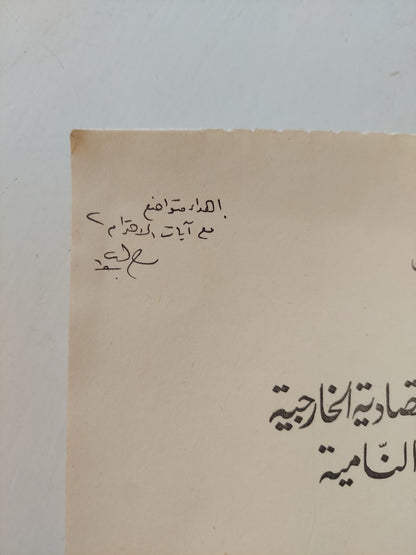 اهداء متواضع
مع آيات الاحترام
صادية الخارجية
النّامية